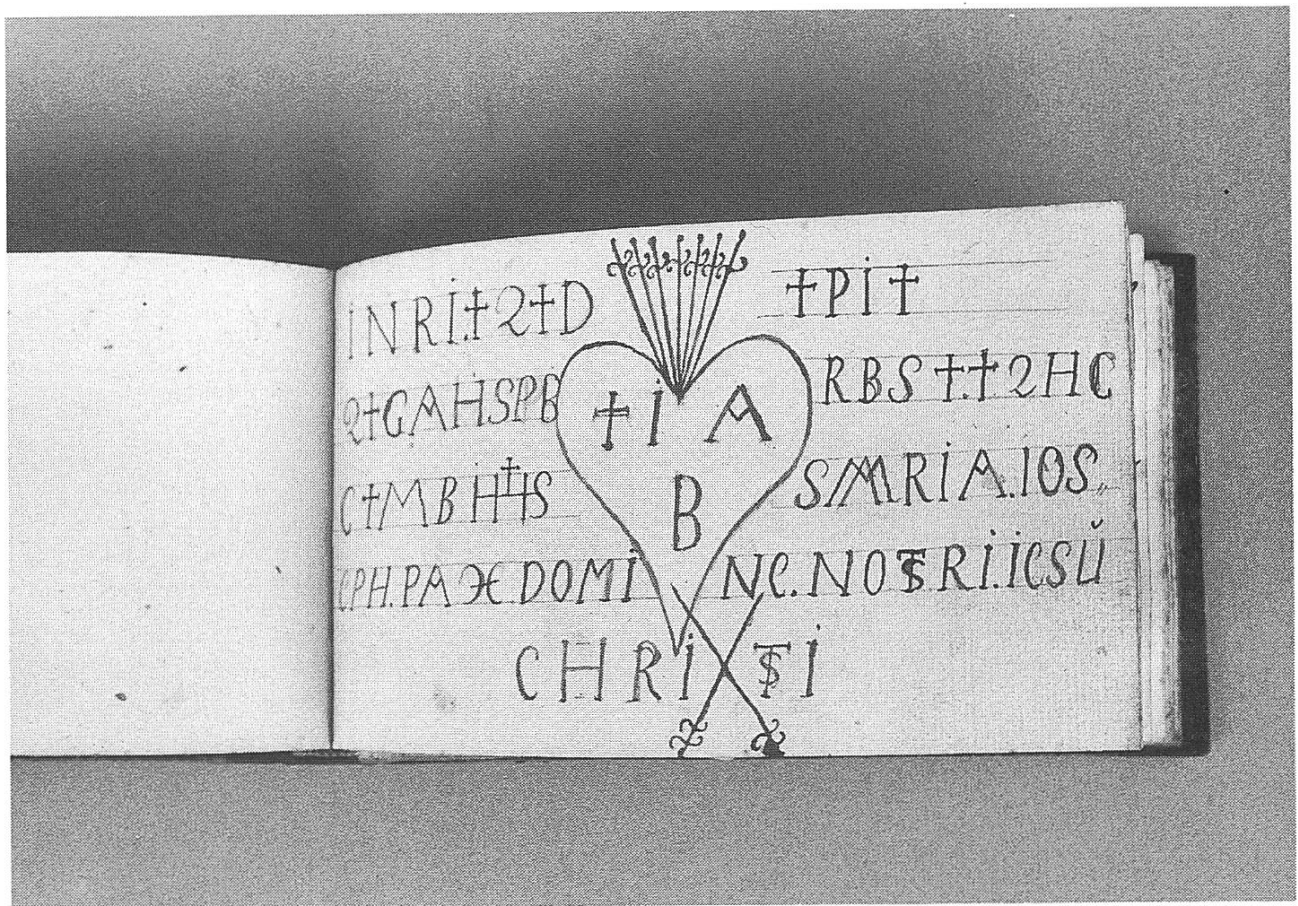 İNRİ.†2†D †Pİ†
2†GAHSPB †İ A RBS†.†2HC
C†MBHHS B SMRİA.IOS
CPH.PAX DOMİ NC.NOSTRİ.İCSŬ
CHRİSTİ